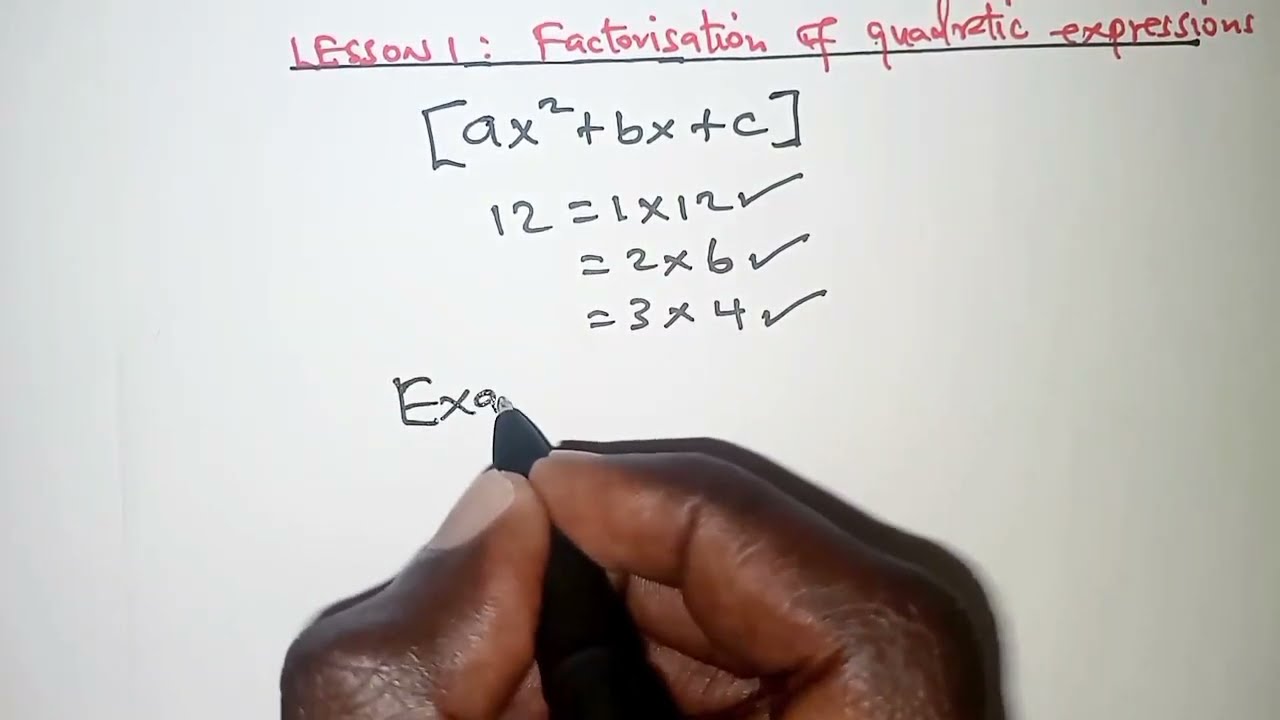 LESSON 1 : Factorisation of quadratic expressions
[ax²+bx+c]
12 = 1×12✓
= 2×6✓
= 3×4✓
Exa